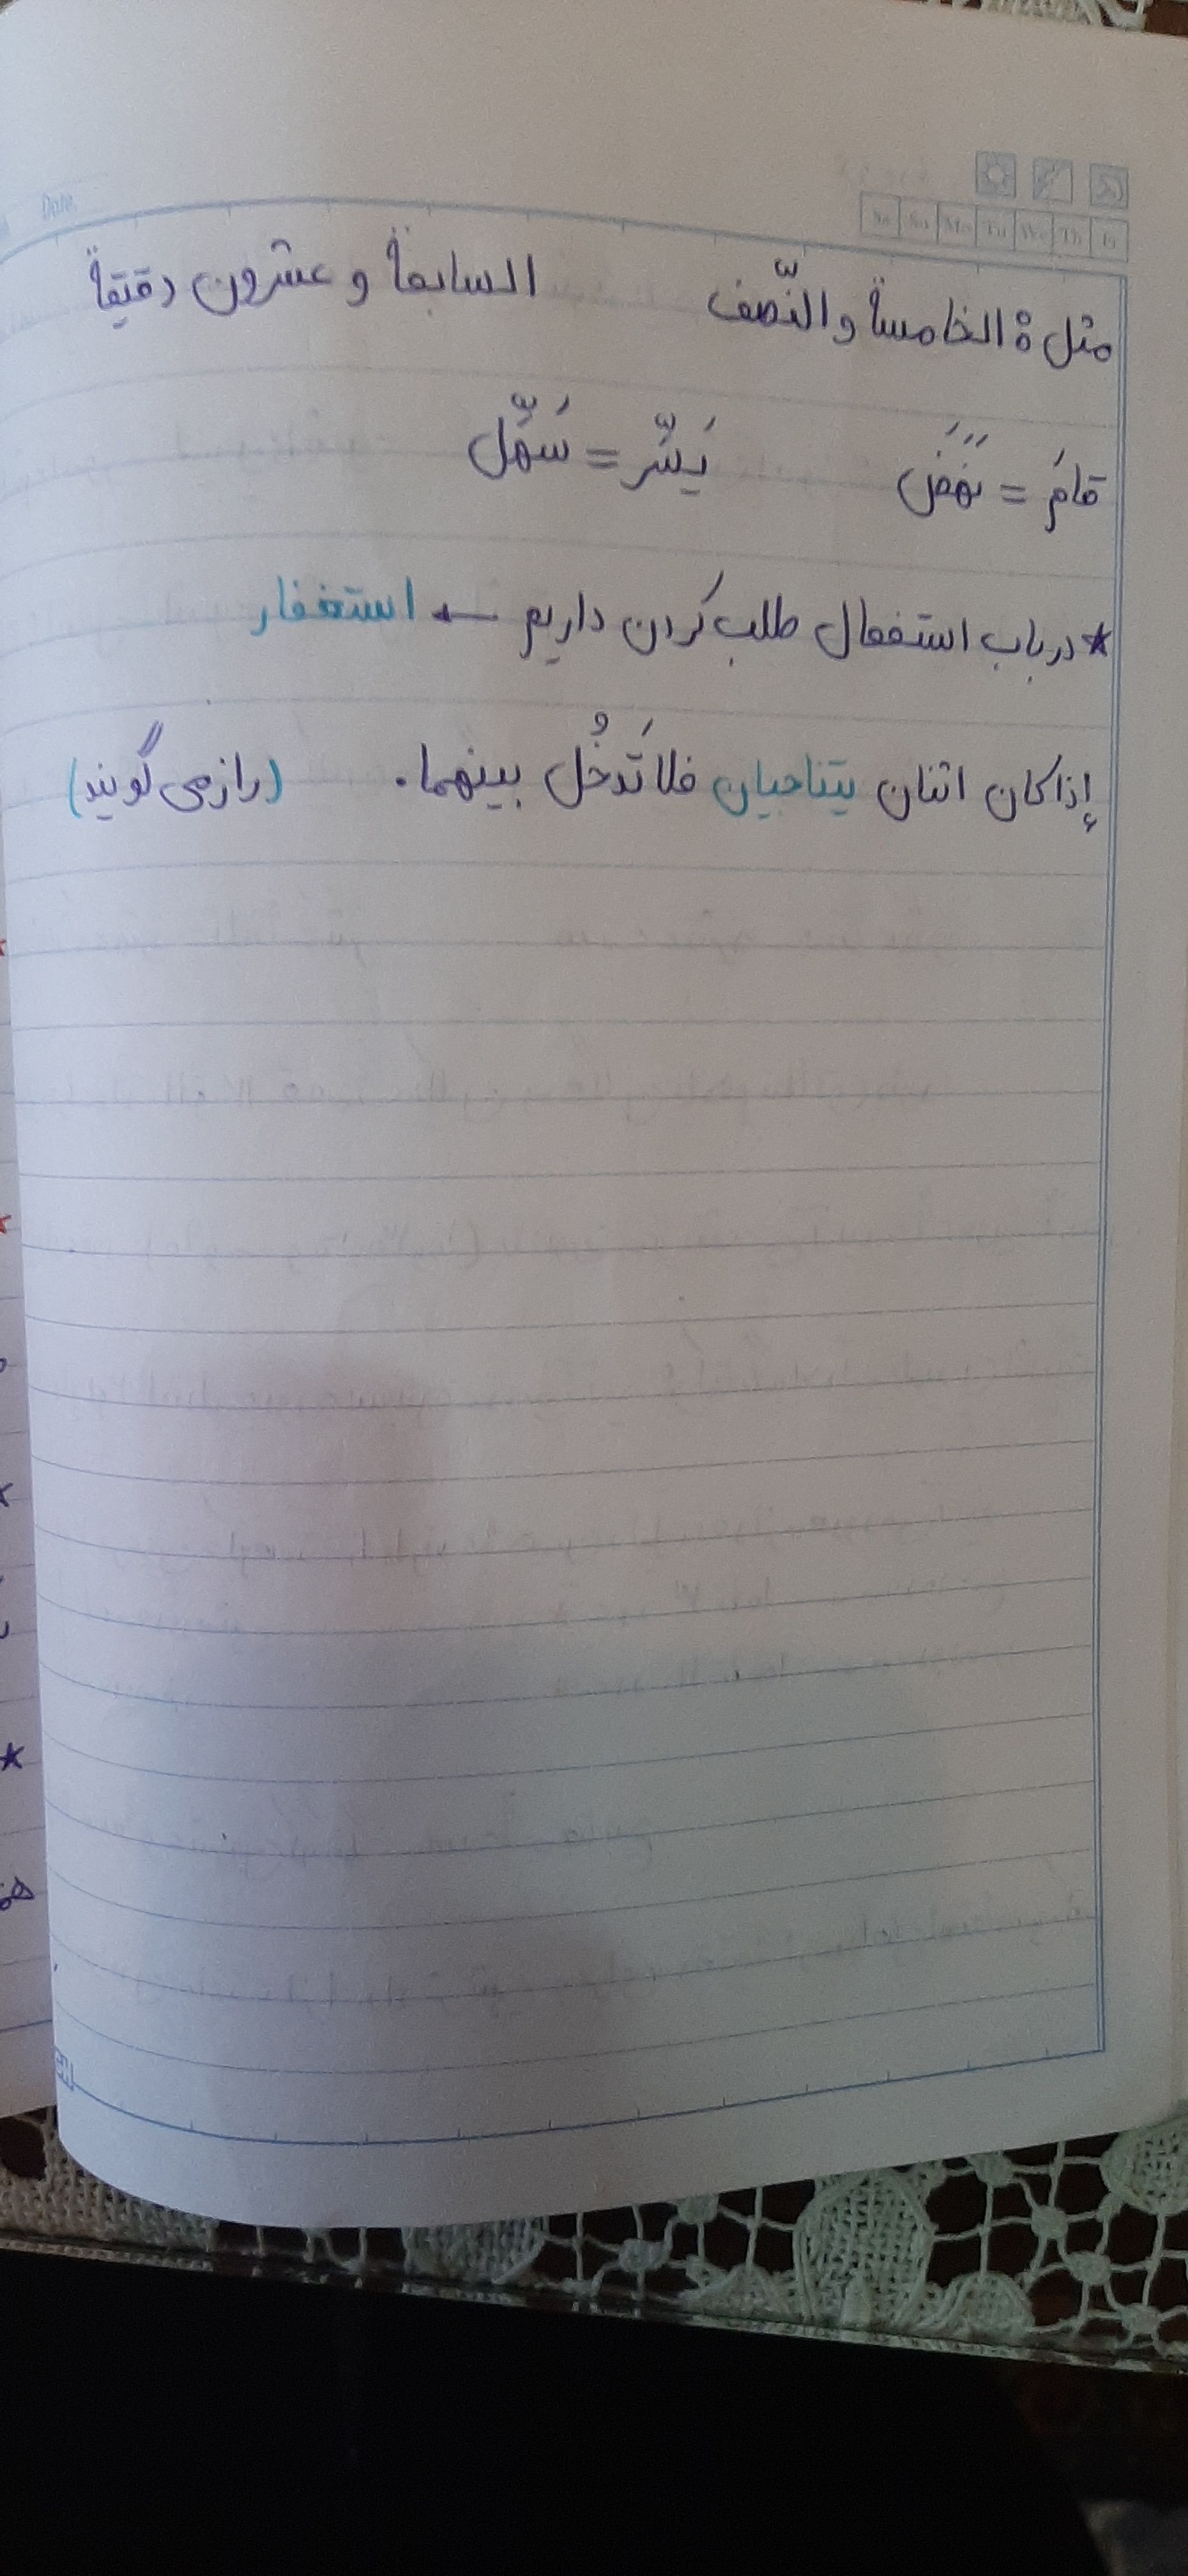 Date:
Sa Su Mo Tu We Th Fr
مثل: الخامسة والنّصف السابعة و عشرون دقیقة
قامَ = نَهَضَ یَسِّر = سَهِّل
★ در باب استفعال طلب کردن داریم ← استغفار
إذا کان اثنان یتناجیان فلا تَدخُل بینهما. (راز می گویند)